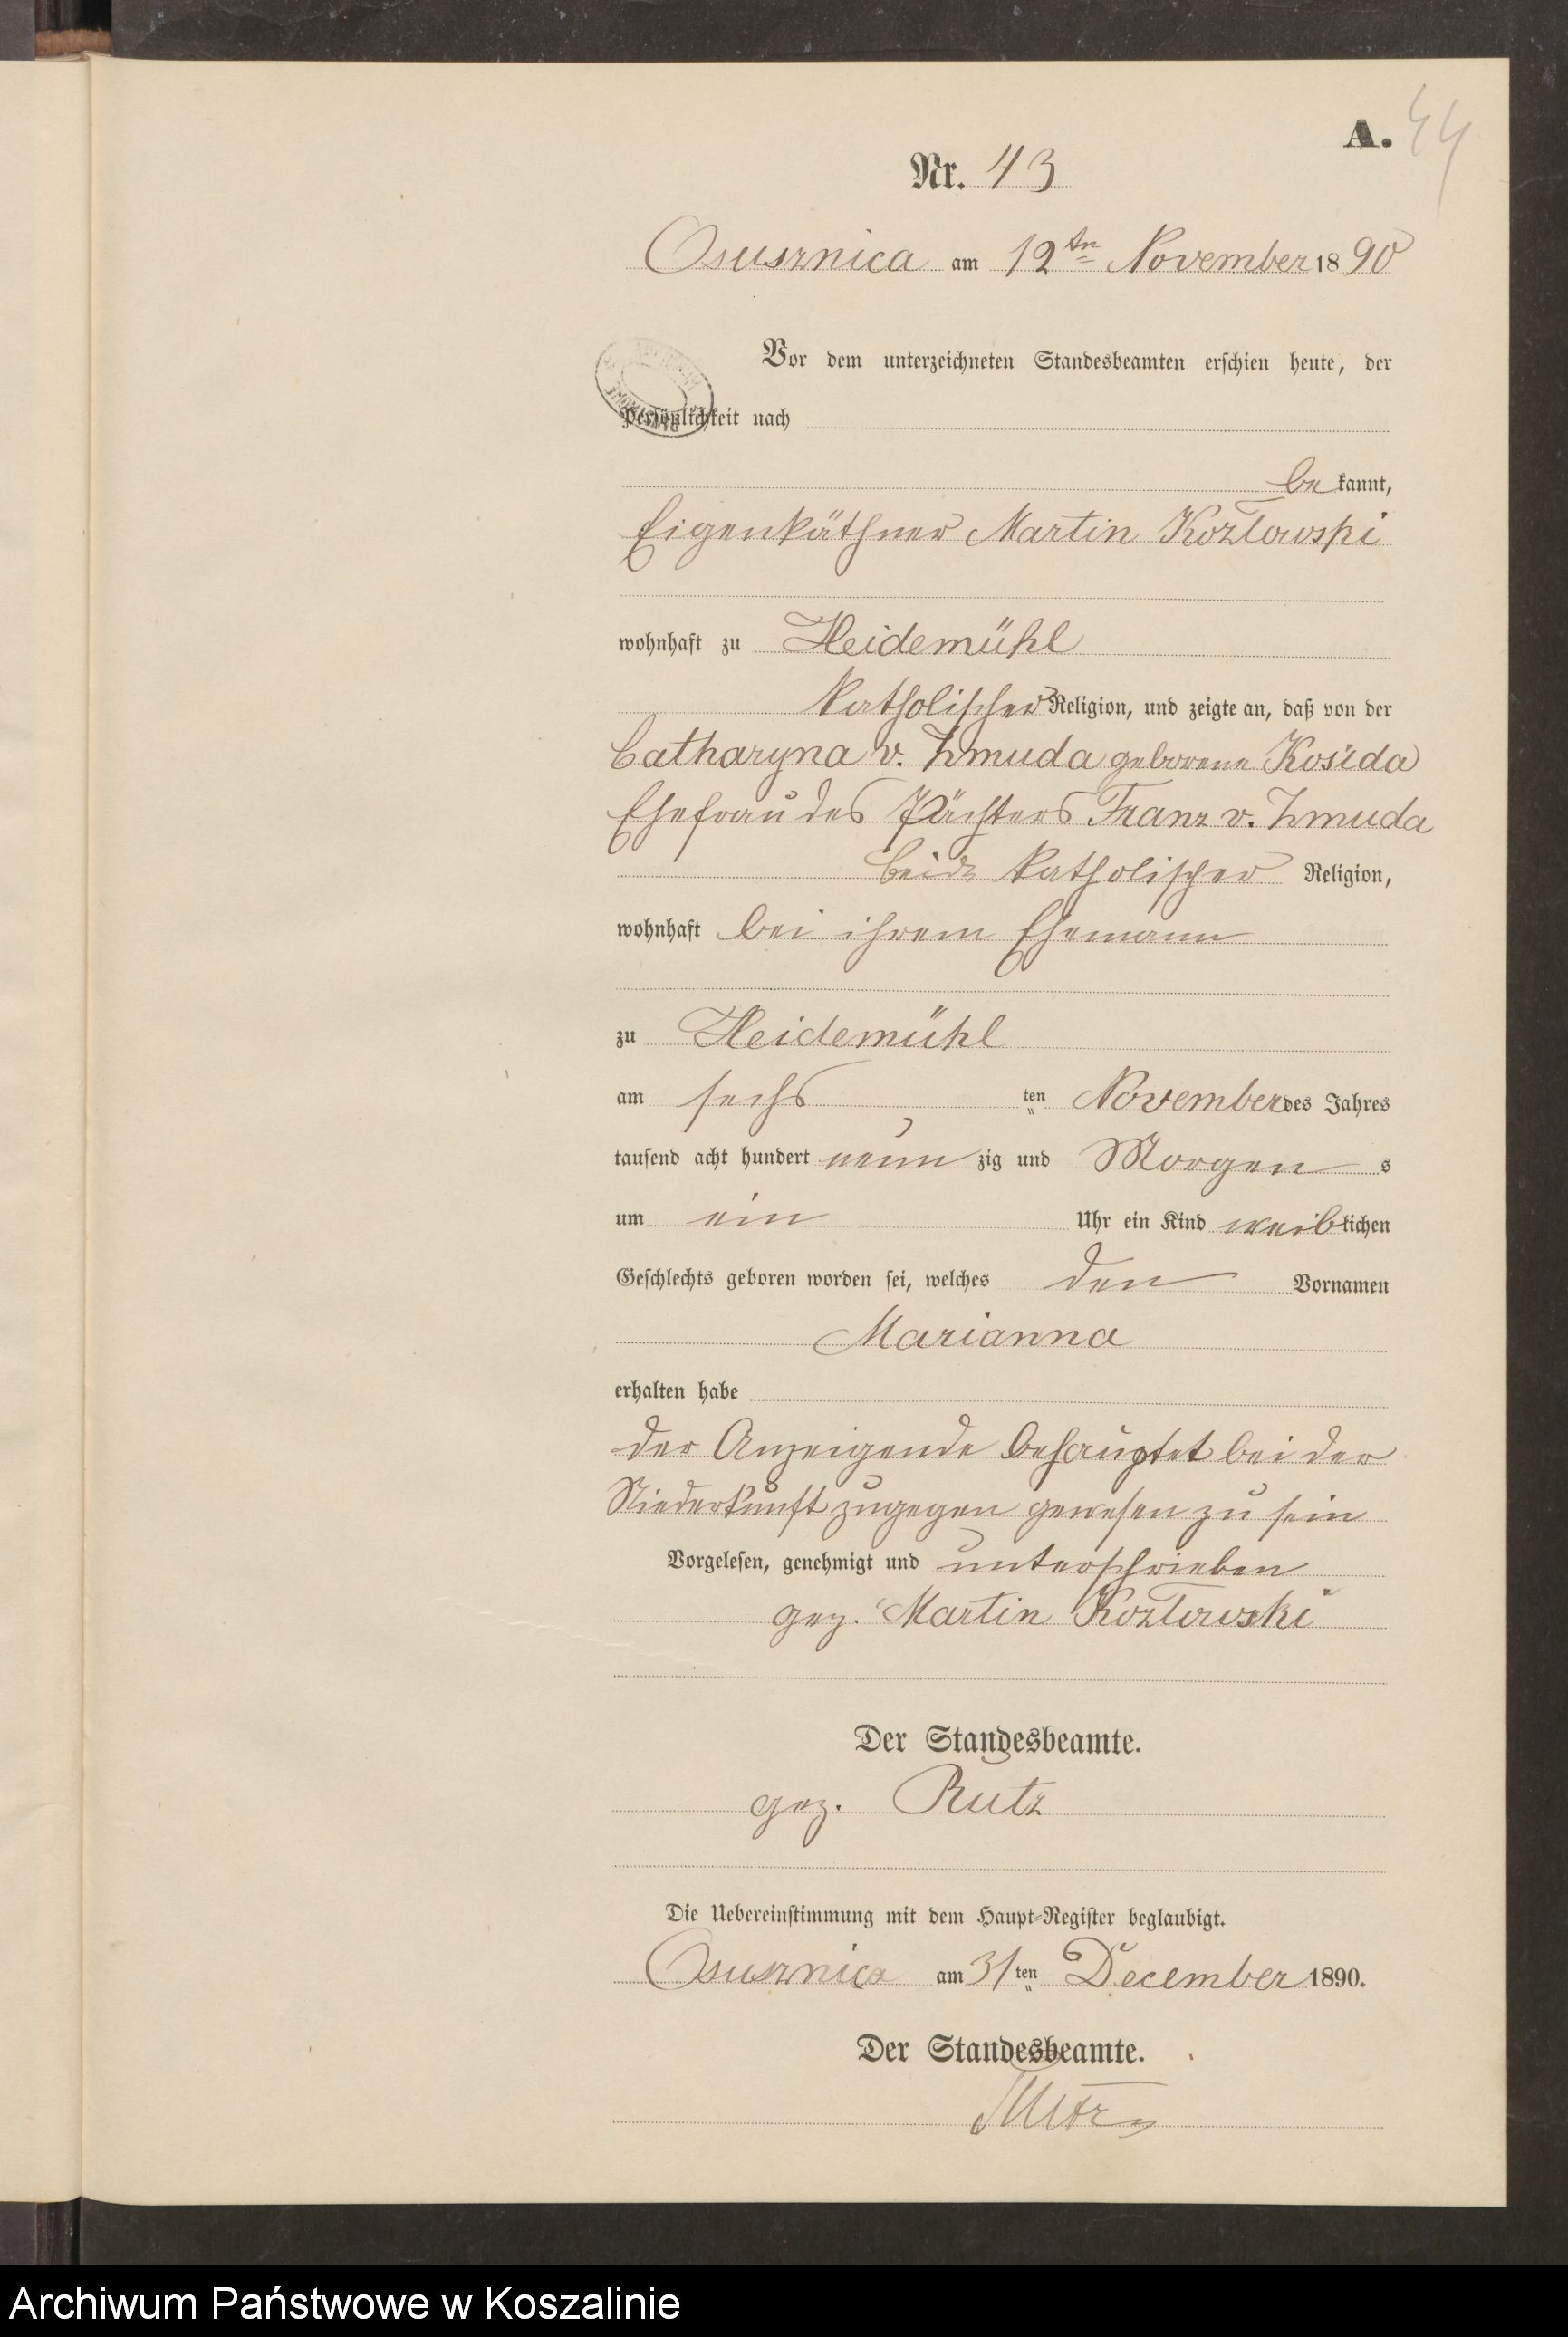 A. 44
Nr. 43
Osusznica am 12tn November 1890
Vor dem unterzeichneten Standesbeamten erschien heute, der
Persönlichkeit nach
bekannt,
Eigenkäthner Martin Kozłowski
wohnhaft zu Heidemühl
katholischer Religion, und zeigte an, daß von der
Catharyna v. Zmuda geborene Kosida
Ehefrau des Pächters Franz v. Zmuda
beide katholischer Religion,
wohnhaft bei ihrem Ehemann
zu Heidemühl
am sechsten November des Jahres
tausend acht hundert neunzig und Morgens
um ein Uhr ein Kind weiblichen
Geschlechts geboren worden sei, welches den Vornamen
Marianna
erhalten habe
der Anzeigende behauptet bei der
Niederkunft zugegen gewesen zu sein
Vorgelesen, genehmigt und unterschrieben
gez. Martin Kozłowski
Der Standesbeamte.
gez. Rutz
Die Uebereinstimmung mit dem Haupt-Register beglaubigt.
Osusznica am 31ten December 1890.
Der Standesbeamte.
Archiwum Państwowe w Koszalinie